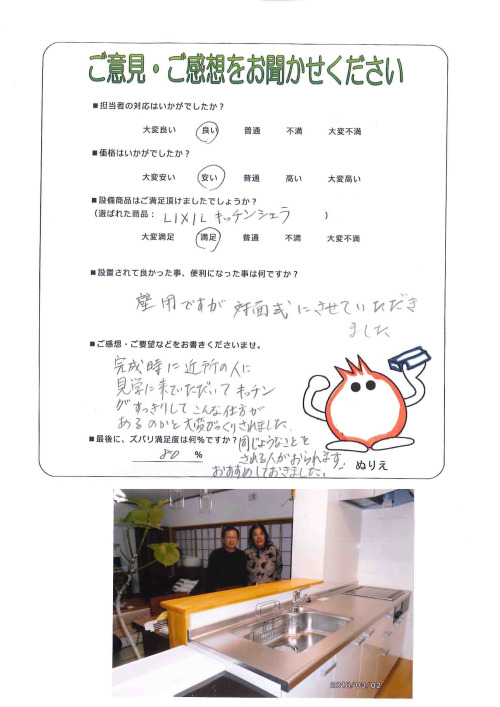 ご意見・ご感想をお聞かせください
■担当者の対応はいかがでしたか?
大変良い 良い 普通 不満 大変不満
■価格はいかがでしたか?
大変安い 安い 普通 高い 大変高い
■設備商品はご満足頂けましたでしょうか?
(選ばれた商品: LIXIL キッチンシエラ )
大変満足 満足 普通 不満 大変不満
■設置されて良かった事、便利になった事は何ですか?
壁用ですが 対面式にさせていただき
ました
■ご感想・ご要望などをお書きくださいませ。
完成時に近所の人に
見学に来ていただいてキッチン
がすっきりしてこんな仕方が
あるのかと大変びっくりされました.
■最後に、ズバリ満足度は何%ですか?
80 %
同じようなことを
される人がおられます.
おすすめしておきました。
ぬりえ
2013/03/02